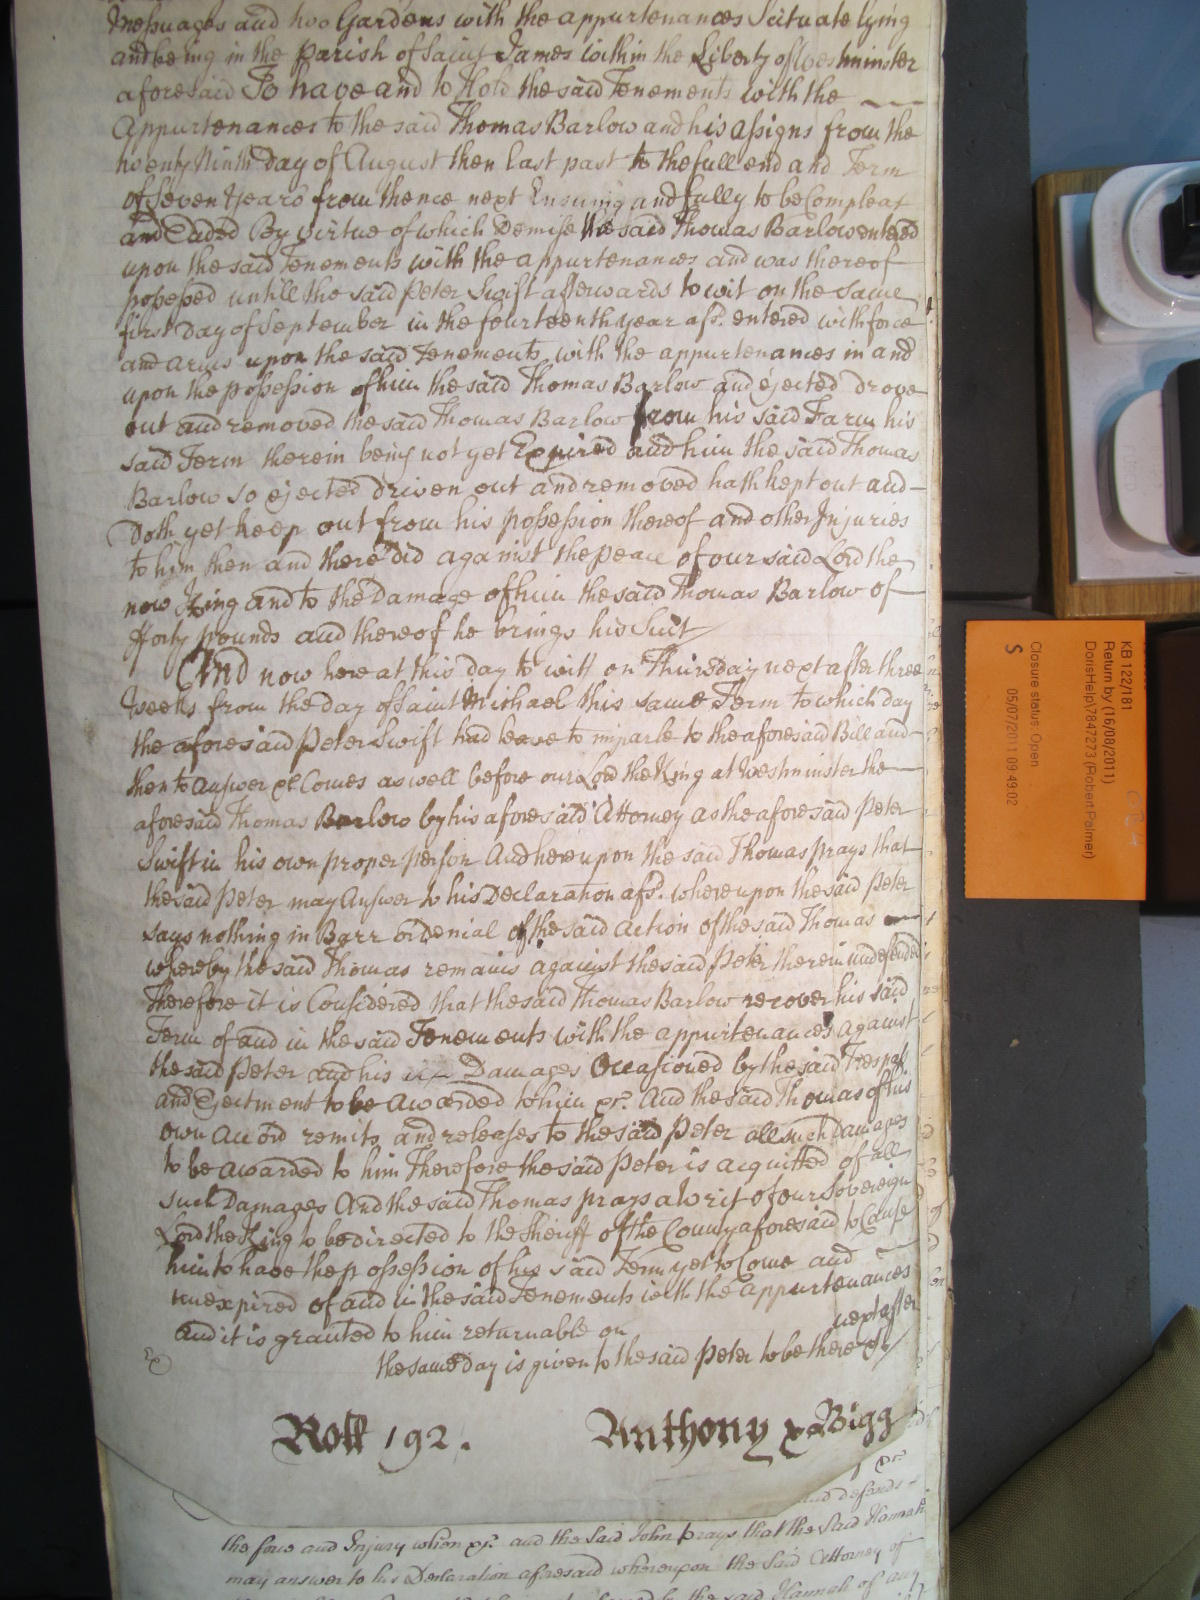 Messuages and two Gardens with the appurtenances Scituate lying
and being in the Parish of Saint James within the Liberty of Westminster
aforesaid To have and to Hold the said Tenements with the
Appurtenances to the said Thomas Barlow and his assigns from the
twenty Ninth Day of August then last past to the full end and Term
of Seven Years from thence next Ensuing and fully to be Compleat
and Ended By virtue of which Demise the said Thomas Barlow entered
upon the said Tenements with the appurtenances and was thereof
possessed untill the said Peter Swift afterwards to wit on the same
first Day of September in the fourteenth year afsd. entered with force
and arms upon the said Tenements with the appurtenances in and
upon the possession of him the said Thomas Barlow and ejected drove
out and removed the said Thomas Barlow from his said Farm his
said Term therein being not yet Expired and him the said Thomas
Barlow so ejected driven out and removed hath kept out and
Doth yet keep out from his possession thereof and other Injuries
to him then and there did against the peace of our said Lord the
now King and to the Damage of him the said Thomas Barlow of
fforty pounds and thereof he brings his Suit
And now here at this day to witt on Thursday next after three
Weeks from the day of Saint Michael this same Term to which day
the aforesaid Peter Swift had leave to imparle to the aforesaid Bill and
then to Answer &c Comes as well before our Lord the King at Westminster the
aforesaid Thomas Barlow by his aforesaid Attorney as the aforesaid Peter
Swift in his own proper person And hereupon the said Thomas prays that
the said Peter may Answer to his Declaration afsd. whereupon the said Peter
says nothing in Barr or denial of the said Action of the said Thomas
whereby the said Thomas remains against the said Peter therein undefended
Therefore it is Considered that the said Thomas Barlow recover his said
Term of and in the said Tenements with the appurtenances against
the said Peter and his Damages Occasioned by the said Trespass
and Ejectment to be awarded to him &c. And the said Thomas of his
own accord remits and releases to the said Peter all such Damages
to be awarded to him Therefore the said Peter is acquitted of all
such Damages And the said Thomas prays a Writ of our Sovereign
Lord the King to be directed to the Sheriff of the County aforesaid to Cause
him to have the possession of his said Term yet to Come and
unexpired of and in the said Tenements with the appurtenances
and it is granted to him returnable on next after
the same day is given to the said Peter to be there &c
Roll 192. Anthony & Bigg
and defends
the force and Injury when &c. and the said John prays that the said Hannah
may answer to his Declaration aforesaid whereupon the said Attorney of
the said Hannah of any
KB 122/181
Return by (16/08/2011)
DorisHelp\7847273 (Robert Palmer)
Closure status: Open
S 05/07/2011 09:49:02